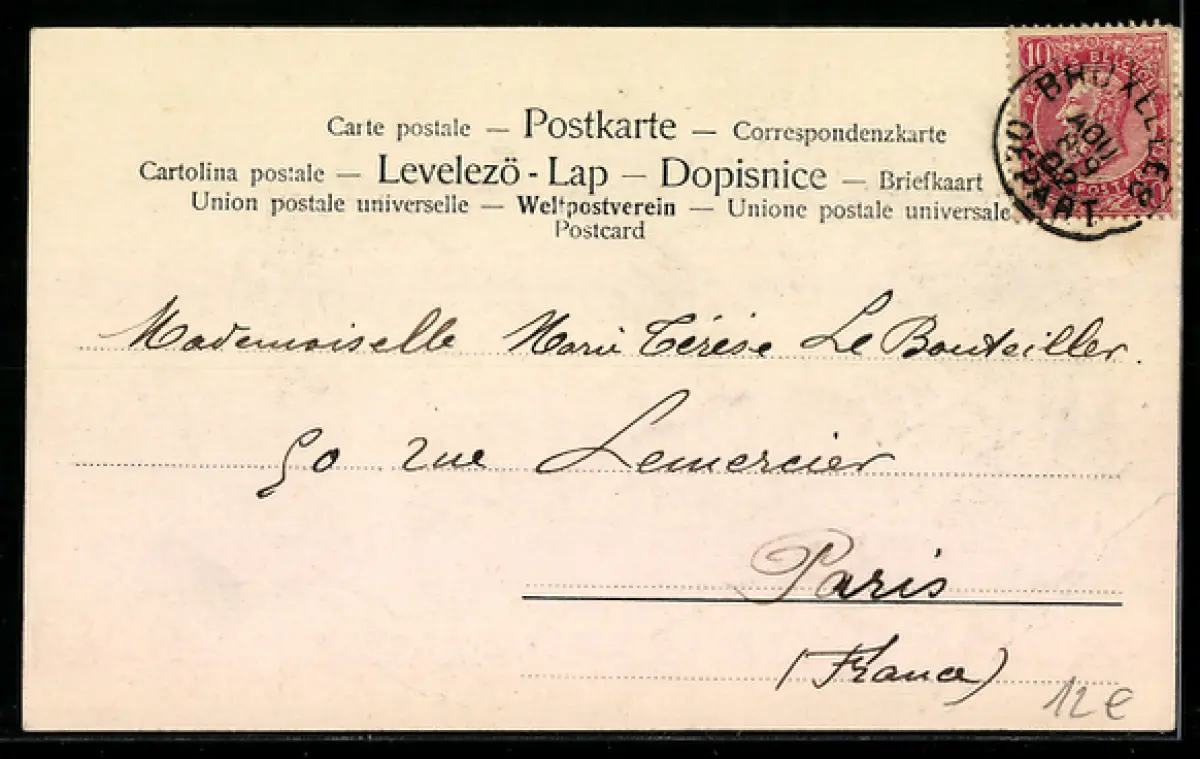 Carte postale — Postkarte — Correspondenzkarte
Cartolina postale — Levelezö - Lap — Dopisnice — Briefkaart
Union postale universelle — Weltpostverein — Unione postale universale
Postcard
10
BRUXELLES
AOUT
DEPART
Mademoiselle Marie Térése Le Bouteiller.
50 rue Lemercier
Paris
(France)
12€